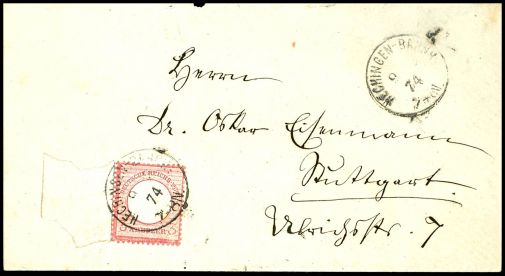 HECHINGEN-BAHNH.
9
74
7-8 N.
Herrn
Dr. Oskar Eisenmann
Stuttgart.
Ulrichstr. 7
HECHING
74
DEUTSCHE REICHS
KREUZER